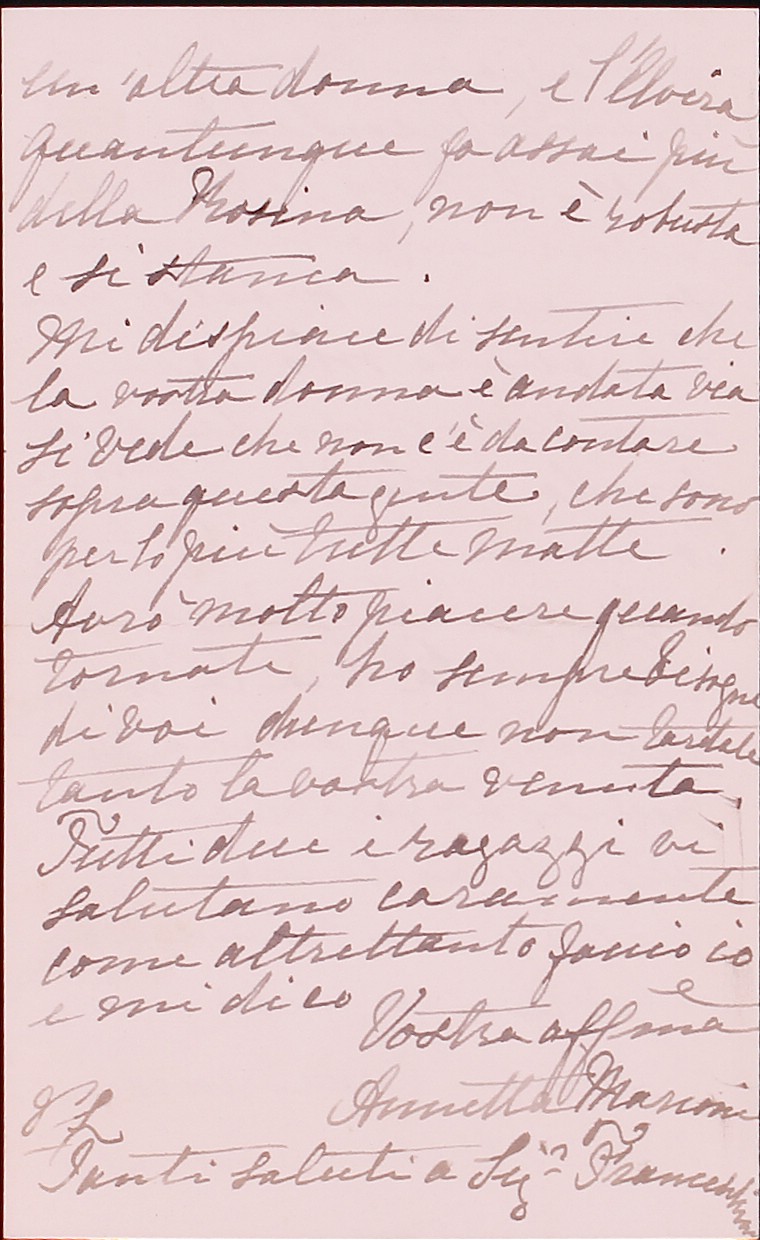 un'altra donna, e l'Elvira
quantunque fa assai più
della Rosina, non è robusta
e si stanca.
Mi dispiace di sentire che
la vostra donna è andata via
si vede che non c'è da contare
sopra questa gente, che sono
per lo più tutte matte.
Avrò molto piacere quando
tornate, ho sempre bisogno
di voi dunque non tardate
tanto la vostra venuta.
Tutti due i ragazzi vi
salutano caramente
come altrettanto faccio io
e mi dico
Vostra affma
Annetta Marconi
PS
Tanti saluti a Sigra